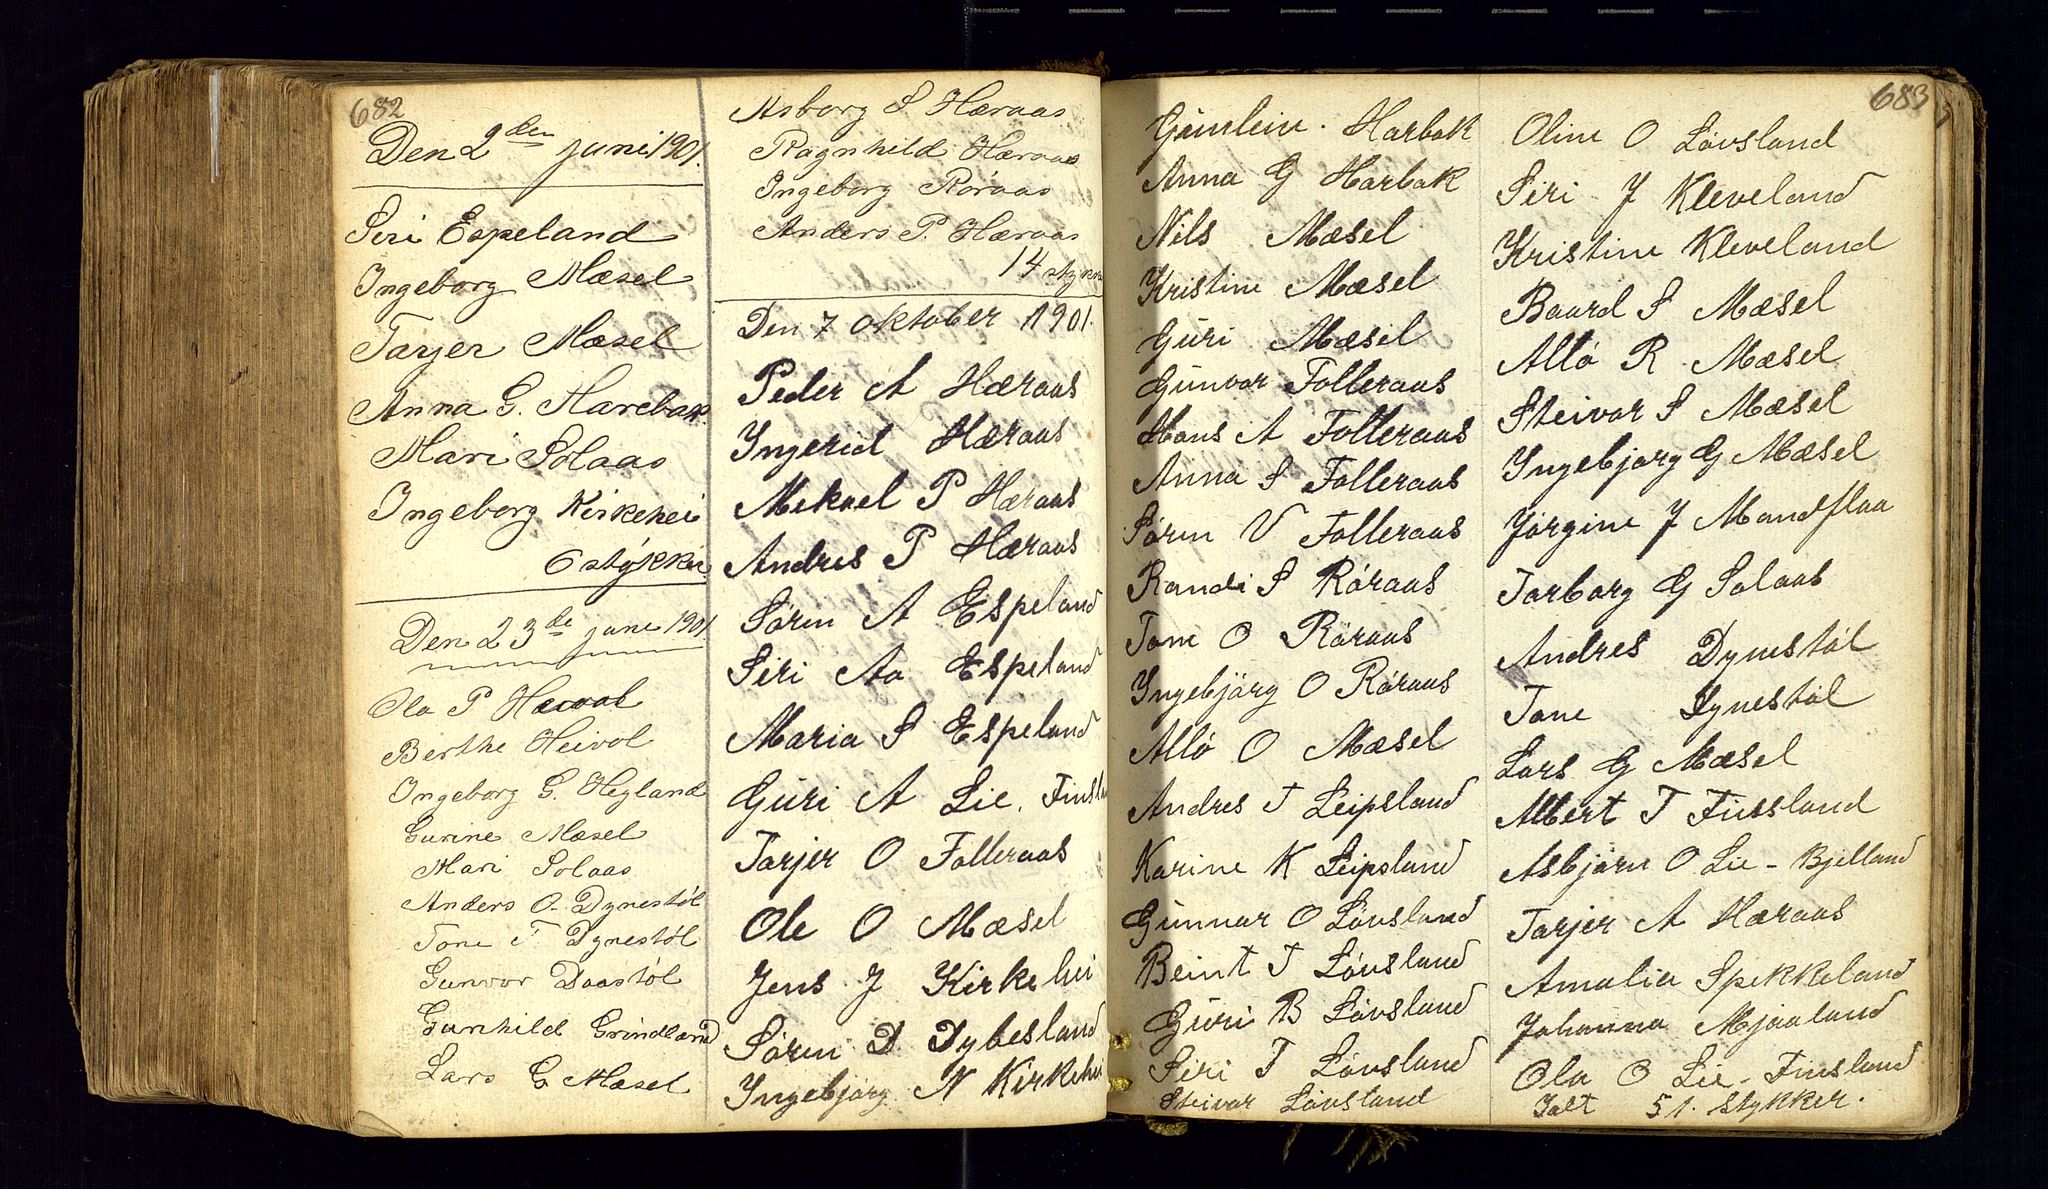 682
Den 2den juni 1901.
Siri Espeland
Ingeborg Mæsel
Tarjer Mæsel
Anna G. Harebak
Mari Solaas
Ingeborg Kirkehei
6 stykker.
Den 23de juni 1901
Ola P Heivol
Berthe Heivol
Ingeborg G. Hegland
Gurine Mæsel
Mari Solaas
Anders O. Dynestøl
Tone T Dynestøl
Gunvor Daastøl
Gunhild Grindland
Lars G Mæsel
Asborg S Hæraas
Ragnhild Hæraas
Ingeborg Røraas
Anders P. Hæraas
14 stykk
Den 7 oktober 1901.
Peder A Hæraas
Yngerid Hæraas
Mekael P Hæraas
Andres P Hæraas
Søren A Espeland
Siri Aa Espeland
Maria S Espeland
Guri A Lie. Finsla
Tarjer O Folleraas
Ole O Mæsel
Jens J Kirkehei
Søren D Dybesland
Yngebjørg N Kirkehei
683
Gunlein. Harbak
Anna G Harbak
Nils Mæsel
Kristine Mæsel
Guri Mæsel
Gunvor Folleraas
Hans A Folleraas
Anna S Folleraas
Søren V Folleraas
Randi S Røraas
Tone O Røraas
Yngebjørg O Røraas
Allo O Mæsel
Andres T Leipsland
Karine K Leipsland
Gunnar O Løvsland
Beint T Løvsland
Guri B Løvsland
Siri T Løvsland
Steivor Løvsland
Oline O Løvsland
Siri J Kleveland
Kristine Kleveland
Baard S Mæsel
Allo R Mæsel
Steivor S Mæsel
Yngebjørg G Mæsel
Jørgine J Mandflaa
Torborg G Solaas
Andres Dynestøl
Tone Dynestøl
Lars G Mæsel
Albert T Finsland
Asbjørn O Lie - Bjelland
Tarjer A Hæraas
Amalia Spikkeland
Johanna Mjaaland
Ola O Lie - Finsland
Ialt 51. Stykker.